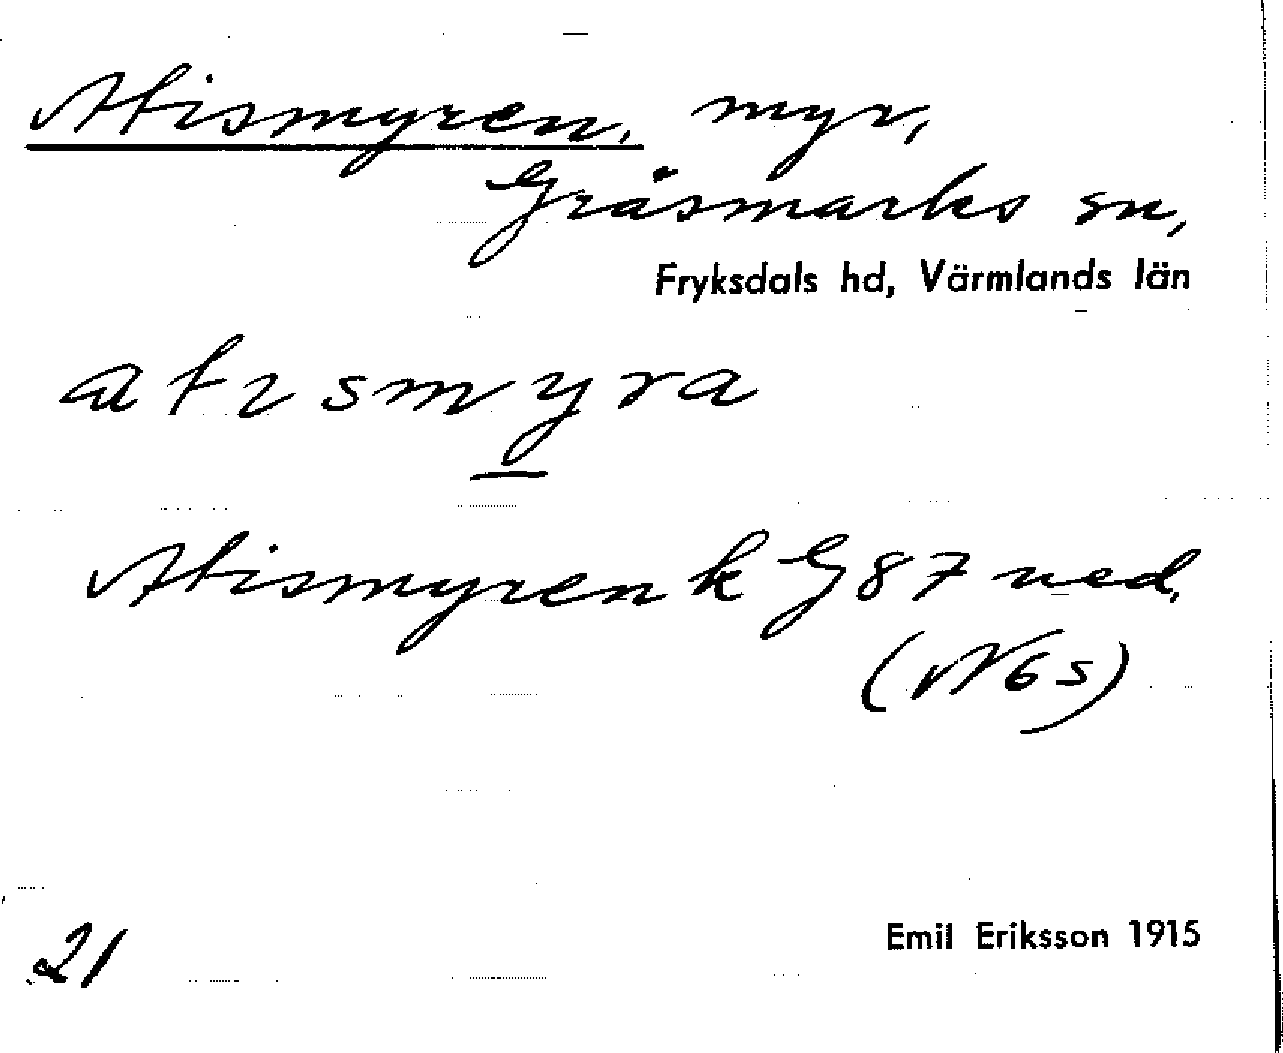 Atismyren, myr,
Gräsmarks sn,
Fryksdals hd, Värmlands län
atısmyra
Atismyren k G 87 ned.
(N6s)
21
Emil Eriksson 1915